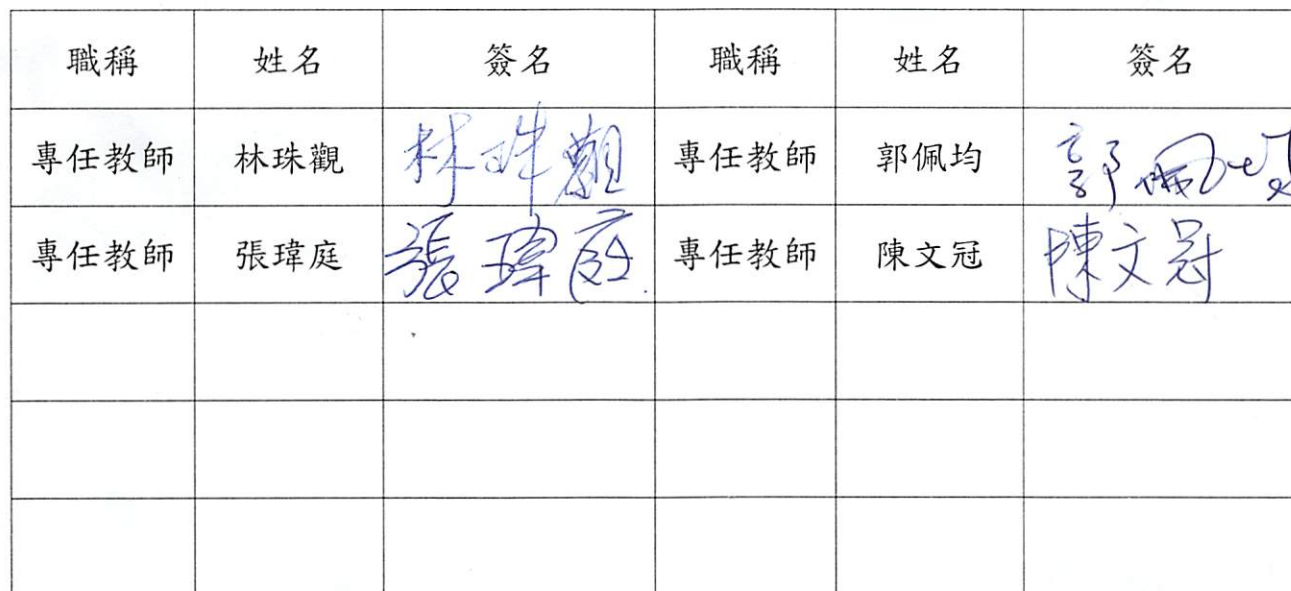 職稱 姓名 簽名 職稱 姓名 簽名
專任教師 林珠觀 林珠觀 專任教師 郭佩均 郭佩均
專任教師 張瑋庭 張瑋庭 專任教師 陳文冠 陳文冠